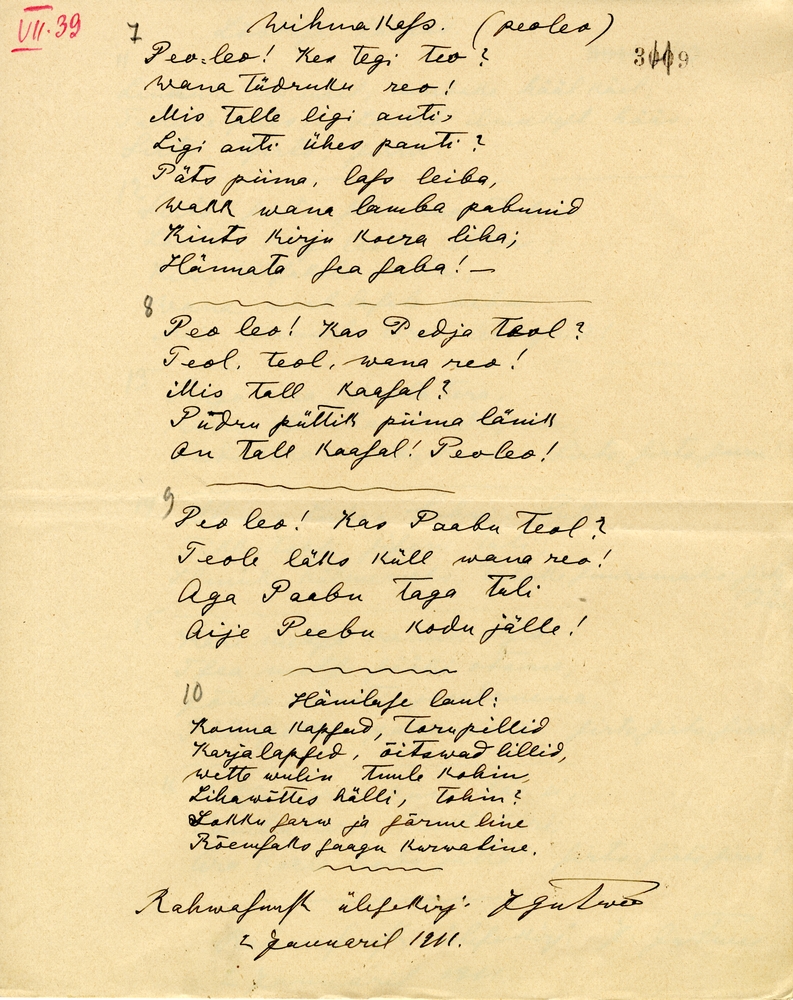 VII. 39
7 Wihmakass. (peoleo)
Peo-leo! Kes tegi teo?
Wana tüdruku reo!
Mis talle ligi anti,
Ligi anti ühes panti?
Päts piima, lass leiba,
Wakk wana lamba pabunid
Kints kirju koera liha;
Hännata sea saba! —
8
Peo leo! Kas Pedja teol?
Teol, teol, wana reo!
Mis tall kaasal?
Püdru püttik piima länik
On tall kaasal! Peoleo!
9
Peo leo! Kas Paabu teol?
Teole läks küll wana reo!
Aga Paabu taga tuli
Aije Peebu kodu jälle!
10
Hänilase laul:
Konna kapsad, Torupillid
Karjalapsed, õitswad lillid,
wette wulin tuule kohin,
Lihawõttes hälli, tohin?
Lokku sarw ja särme line
Rõemsaks saagu kurwaline.
Rahwasuust ülesekirj.
2 Jannaril 1911.